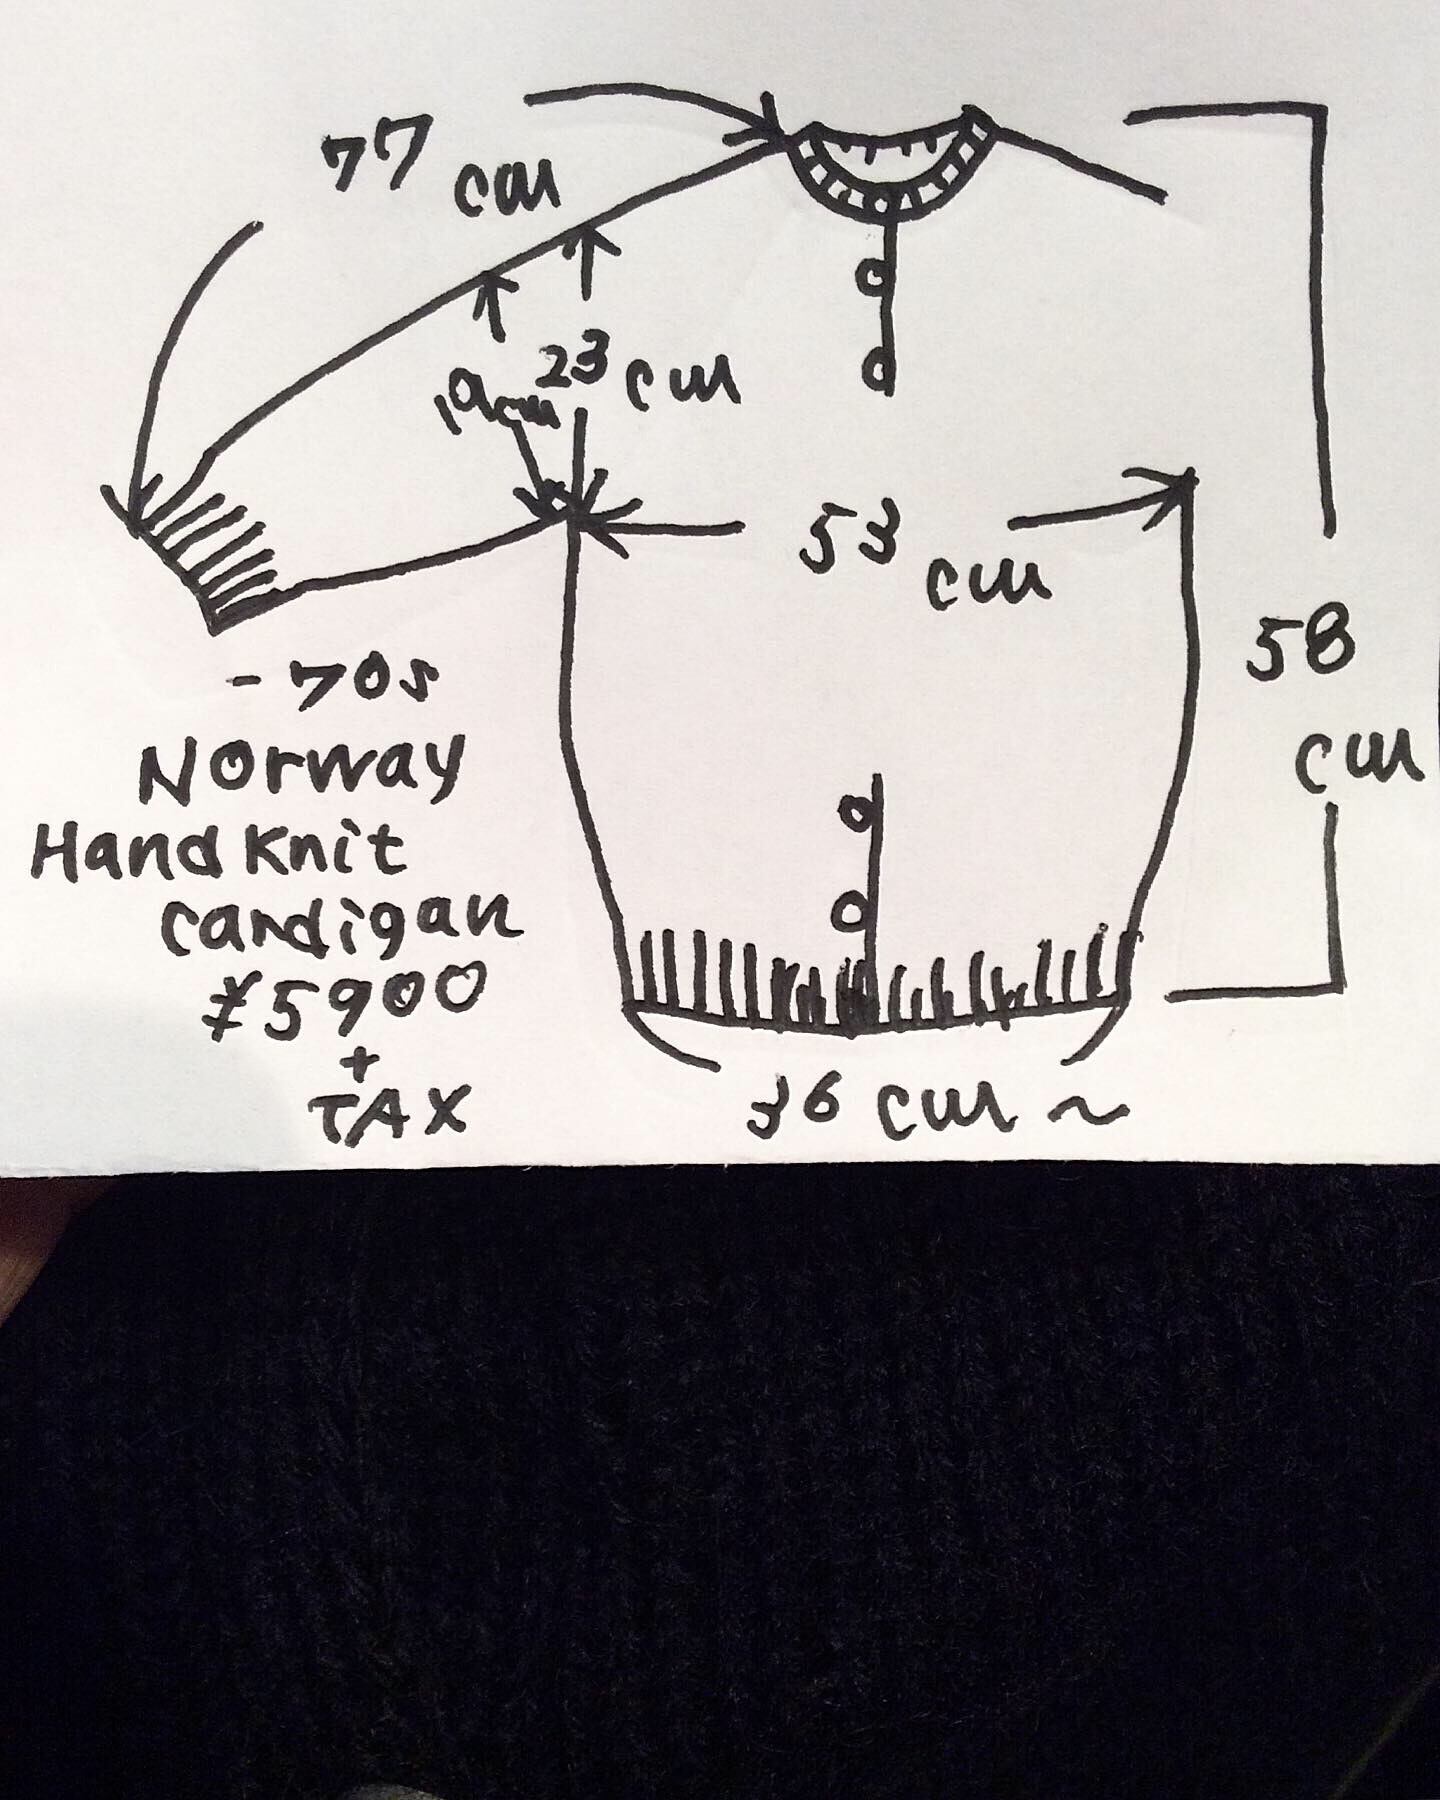 77 cm
23 cm
19cm
53 cm
58
cm
-70s
Norway
Hand Knit
cardigan
¥5900
+
TAX
36 cm ~